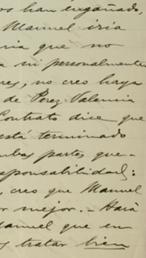 os han engañado
Manuel iría
ria que no
a mi personalmente
res, no cres haya
de Perez Valencia
Contrato dice que
está terminado
mbas partes que-
esponsabilidad:
, cres que Manuel
r mejor. - Hará
anuel que en
s tratar bien